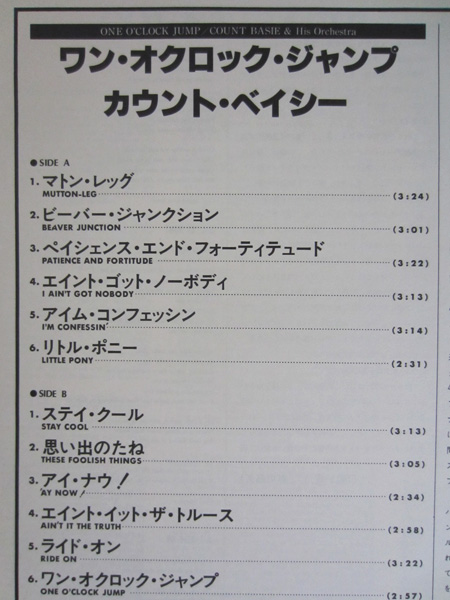 ONE O'CLOCK JUMP / COUNT BASIE & His Orchestra
ワン・オクロック・ジャンプ
カウント・ベイシー
●SIDE A
1. マトン・レッグ
MUTTON-LEG (3:24)
2. ビーバー・ジャンクション
BEAVER JUNCTION (3:01)
3. ペイシェンス・エンド・フォーティテュード
PATIENCE AND FORTITUDE (3:22)
4. エイント・ゴット・ノーボディ
I AIN'T GOT NOBODY (3:13)
5. アイム・コンフェッシン
I'M CONFESSIN' (3:14)
6. リトル・ポニー
LITTLE PONY (2:31)
●SIDE B
1. ステイ・クール
STAY COOL (3:13)
2. 思い出のたね
THESE FOOLISH THINGS (3:05)
3. アイ・ナウ！
'AY NOW! (2:34)
4. エイント・イット・ザ・トルース
AIN'T IT THE TRUTH (2:58)
5. ライド・オン
RIDE ON (3:22)
6. ワン・オクロック・ジャンプ
ONE O'CLOCK JUMP (2:57)